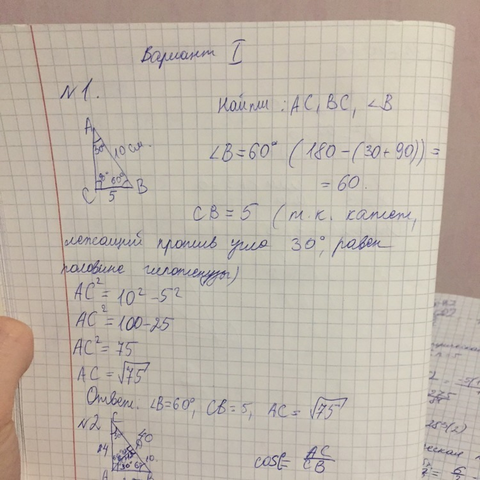 Вариант I
№1.
Найти: AC, BC, ∠B
A
30°
10 см.
90° 60°
C 5 B
∠B=60° (180-(30+90))=
=60.
CB=5 (т.к. катет,
лежащий против угла 30°, равен
половине гипотенузы)
AC²=10²-5²
AC²=100-25
AC²=75
AC=√75
Ответ: ∠B=60°, CB=5, AC=√75
№2.
C
24
10.
A
B
cos C = AC/CB